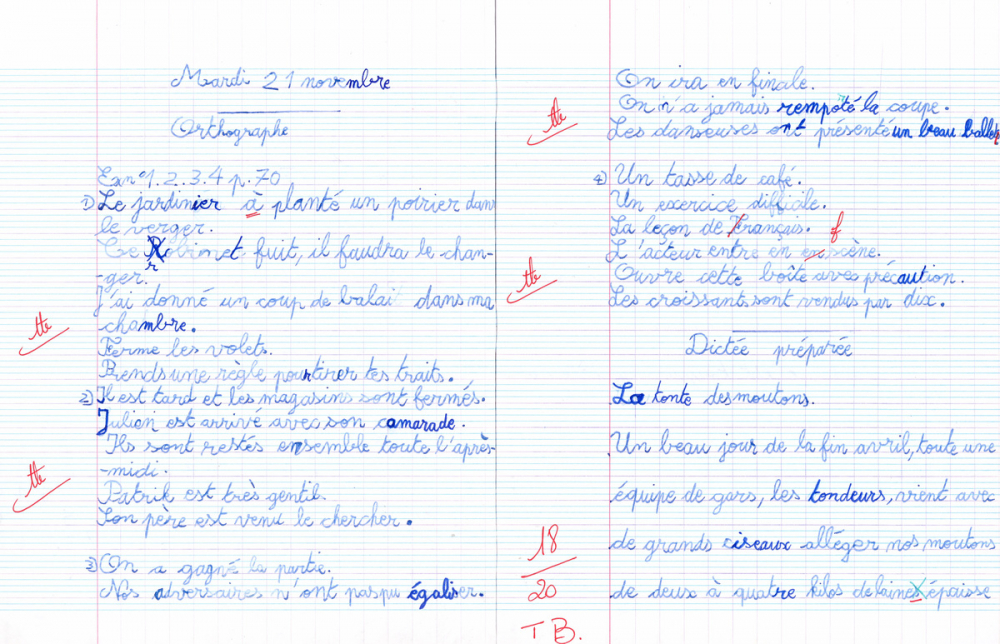 Mardi 21 novembre
Orthographe
Ex n°1.2.3.4 p.70
1) Le jardinier à planté un poirier dans
le verger.
Ce Robinet fuit, il faudra le chan-
r
-ger.
J'ai donné un coup de balai dans ma
chambre.
Ferme les volets.
Prends une règle pour tirer tes traits.
2) Il est tard et les magasins sont fermés.
Julien est arrivé avec son camarade.
Ils sont restés ensemble toute l'après-
-midi.
Patrik est très gentil.
Son père est venu le chercher.
3) On a gagné la partie.
Nos adversaires n'ont pas pu égaliser.
tte
tte
On ira en finale.
On n'a jamais rempoté la coupe.
Les danseuses ont présenté un beau ballet
tte
4) Un tasse de café.
Un exercice difficile.
La leçon de Français.
f
L'acteur entre en en scène.
Ouvre cette boîte avec précaution.
Les croissants sont vendus par dix.
tte
Dictée préparée
La tonte des moutons.
Un beau jour de la fin avril, toute une
équipe de gars, les tondeurs, vient avec
de grands ciseaux alléger nos moutons
de deux à quatre kilos de laines épaisse
18
20
TB.